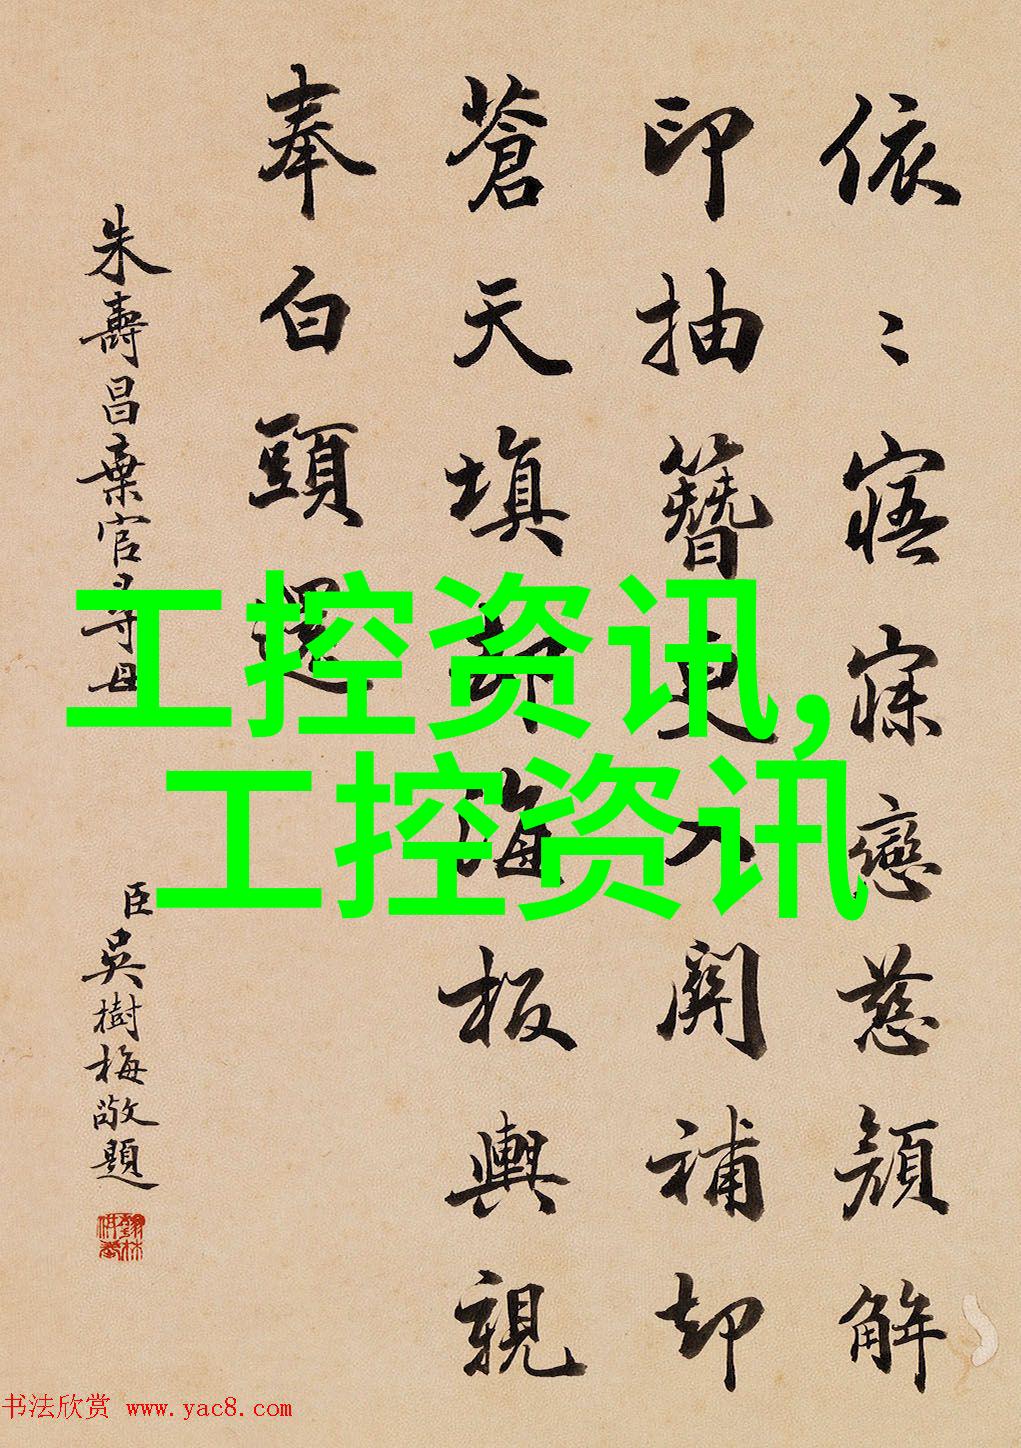 依〻寤寐戀慈顏解
印抽簪更入關補却
蒼天填却海板輿親
奉白頭還
朱壽昌棄官尋母
臣吳樹梅敬題
工控资讯,
工控资讯
书法欣赏 www.yac8.com